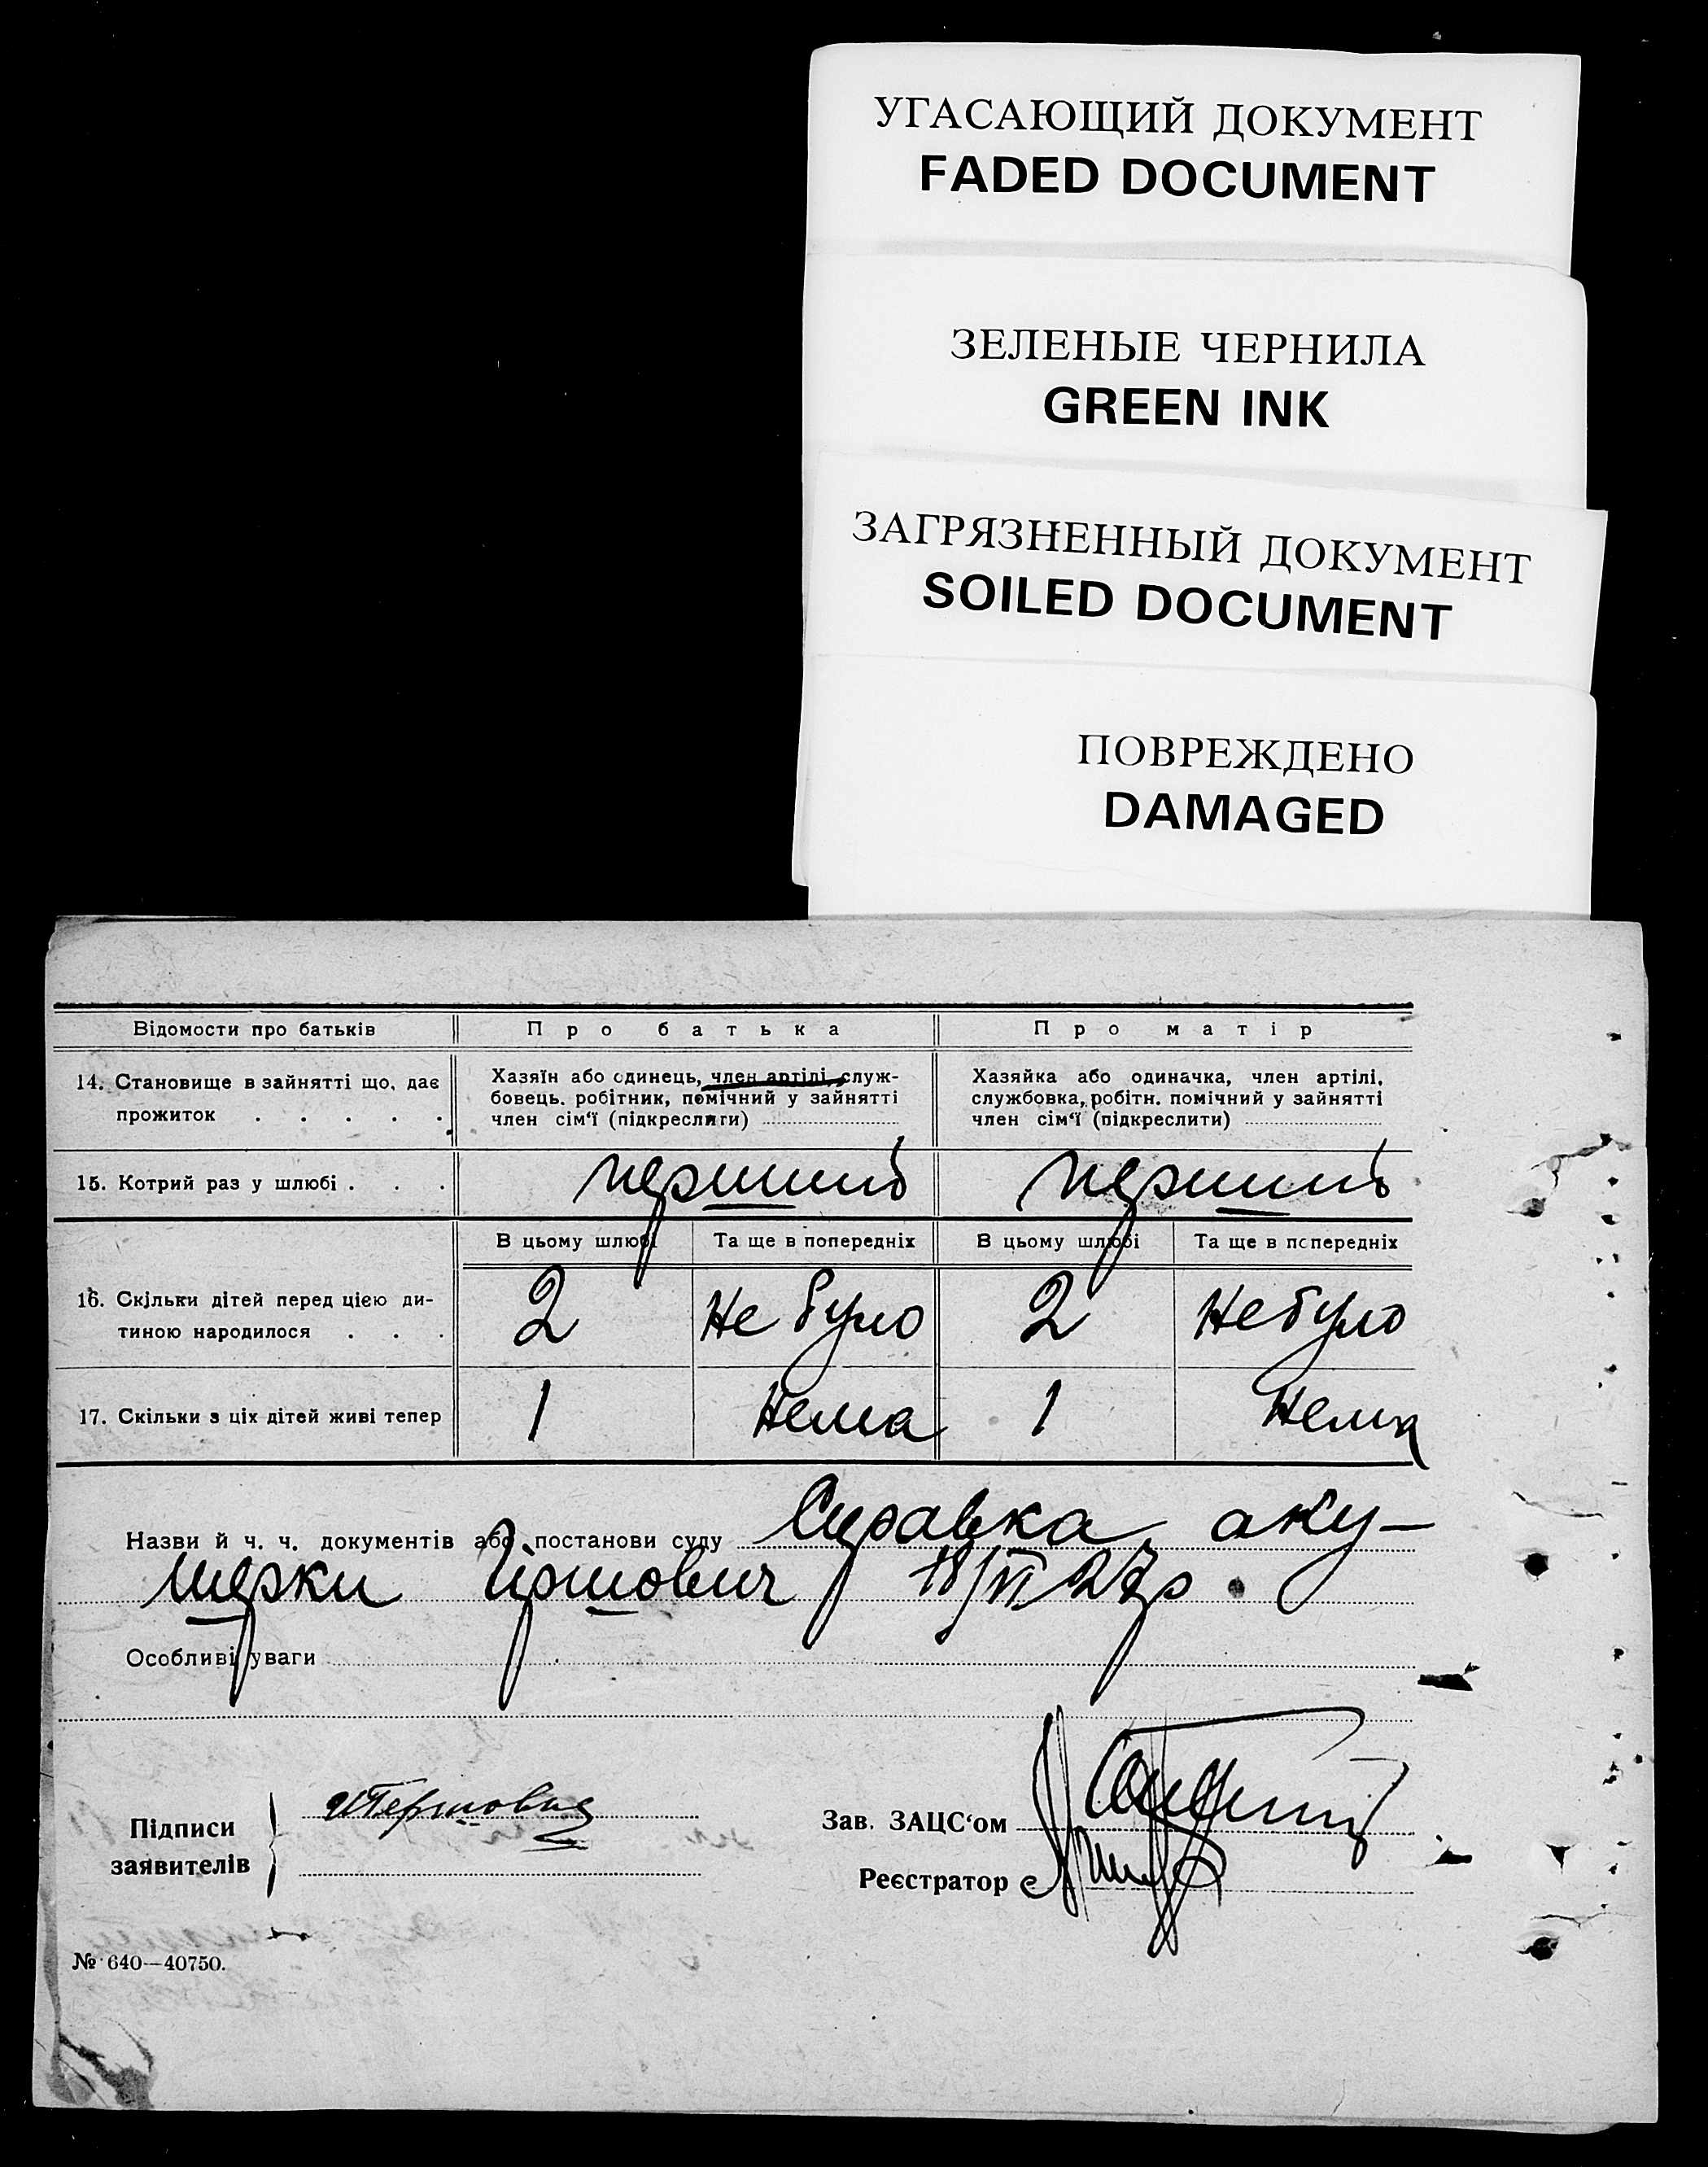 УГАСАЮЩИЙ ДОКУМЕНТ
FADED DOCUMENT
ЗЕЛЕНЫЕ ЧЕРНИЛА
GREEN INK
ЗАГРЯЗНЕННЫЙ ДОКУМЕНТ
SOILED DOCUMENT
ПОВРЕЖДЕНО
DAMAGED
Відомости про батьків Про батька Про матір
14. Становище в зайнятті що, дає прожиток . . . . .
Хазяїн або одинець, член артілі, служ-
бовець. робітник, помічний у зайнятті
член сім'ї (підкреслити)
Хазяйка або одиначка, член артілі,
службовка, робітн. помічний у зайнятті
член сім'ї (підкреслити)
15. Котрий раз у шлюбі . . . перший перший
В цьому шлюбі Та ще в попередніх В цьому шлюбі Та ще в попередніх
16. Скільки дітей перед цією ди-
тиною народилося . . . 2 Не було 2 Не було
17. Скільки з ціх дітей живі тепер 1 Нема 1 Нема
Назви й ч. ч. документів або постанови суду Справка аку-
шерки 18/VI 27р.
Особливі уваги
Підписи
заявителів
Зав. ЗАЦС'ом
Реєстратор
№ 640—40750.